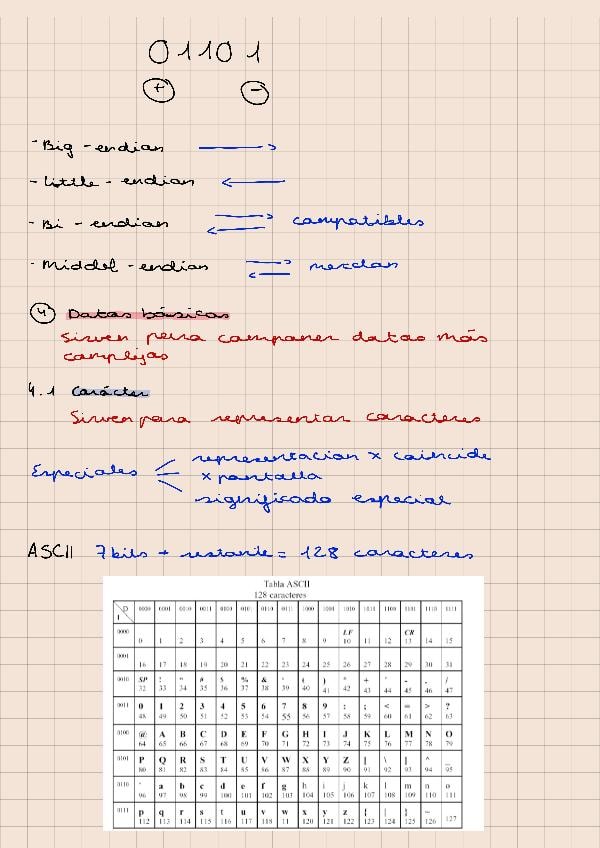 01101
+ -
- Big - endian
- Little - endian
- Bi - endian compatibles
- Middel - endian mezclan
4 Datos básicos
Sirven para componer datos más
complejos
4.1 Carácter
Sirven para representar caracteres
representacion x coincide
Especiales x pantalla
significado especial
ASCII 7 bits + restante = 128 caracteres
Tabla ASCII
128 caracteres
D I 0000 0001 0010 0011 0100 0101 0110 0111 1000 1001 1010 1011 1100 1101 1110 1111
0000 LF CR
0 1 2 3 4 5 6 7 8 9 10 11 12 13 14 15
0001
16 17 18 19 20 21 22 23 24 25 26 27 28 29 30 31
0010 SP ! " # $ % & ' ( ) * + , - . /
32 33 34 35 36 37 38 39 40 41 42 43 44 45 46 47
0011 0 1 2 3 4 5 6 7 8 9 : ; < = > ?
48 49 50 51 52 53 54 55 56 57 58 59 60 61 62 63
0100 @ A B C D E F G H I J K L M N O
64 65 66 67 68 69 70 71 72 73 74 75 76 77 78 79
0101 P Q R S T U V W X Y Z [ \ ] ^ _
80 81 82 83 84 85 86 87 88 89 90 91 92 93 94 95
0110 ` a b c d e f g h i j k l m n o
96 97 98 99 100 101 102 103 104 105 106 107 108 109 110 111
0111 p q r s t u v w x y z { | } ~
112 113 114 115 116 117 118 11 120 121 122 123 124 125 126 127